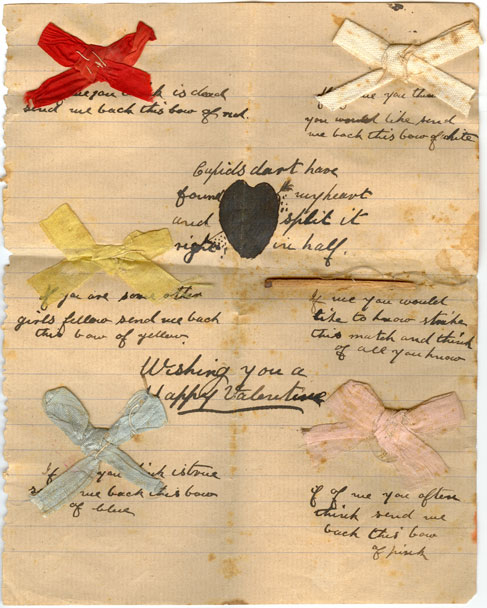 you is dead
send me back this bow of red.
me you
you would like send
me back this bow of white
Cupids dart have
my heart
and split it
right in half.
If you are some other
girls fellow send me back
this bow of yellow.
If me you would
like to know strike
this match and think
of all you know
Wishing you a
Happy Valentine
you is true
me back this bow
of blue
if of me you often
think send me
back this bow
of pink